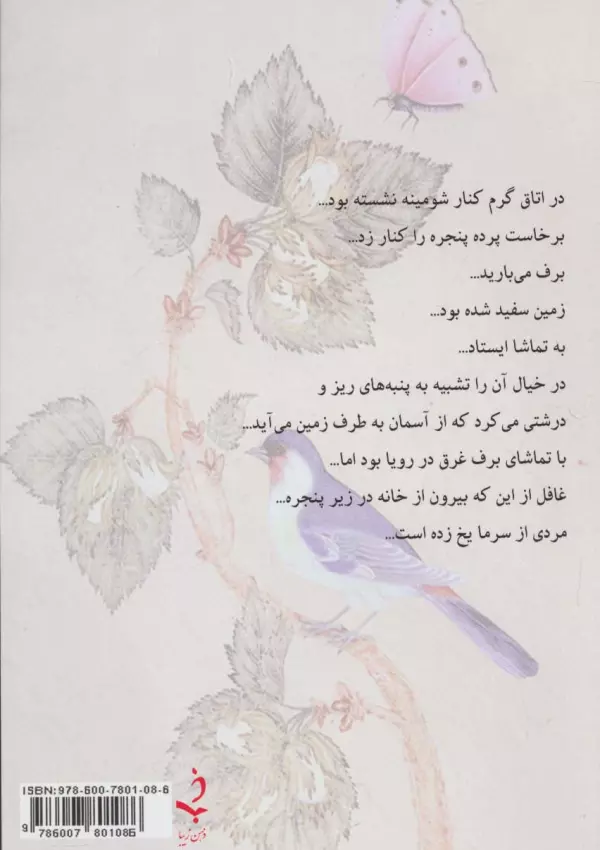 در اتاق گرم کنار شومینه نشسته بود...
برخاست پرده پنجره را کنار زد...
برف می‌بارید...
زمین سفید شده بود...
به تماشا ایستاد...
در خیال آن را تشبیه به پنبه‌های ریز و
درشتی می‌کرد که از آسمان به طرف زمین می‌آید...
با تماشای برف غرق در رویا بود اما...
غافل از این که بیرون از خانه در زیر پنجره...
مردی از سرما یخ زده است...
ISBN:978-600-7801-08-6
9 786007 801086
ذهن زیبا